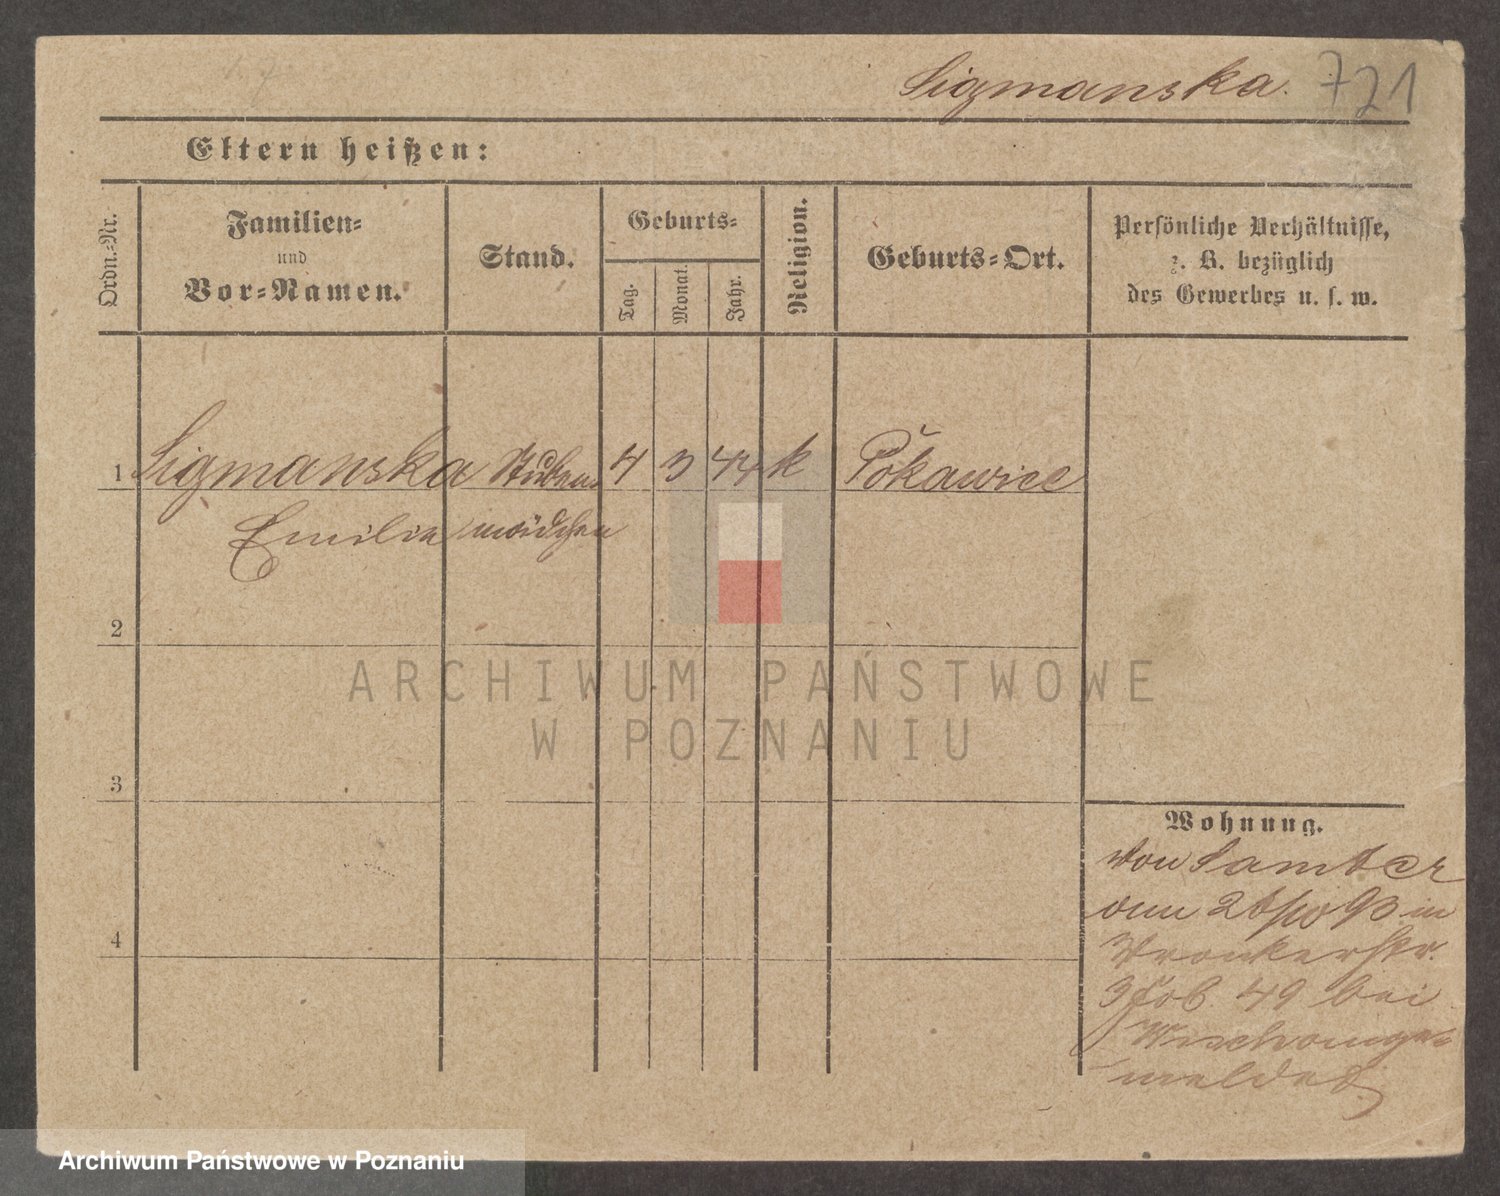 Sigmanska. 721
Eltern heißen:
Ordn.-Nr.
Familien-
und
Vor-Namen.
Stand.
Geburts-
Tag.
Monat.
Jahr.
Religion.
Geburts-Ort.
Persönliche Verhältnisse,
z. B. bezüglich
des Gewerbes u. s. w.
1 Sigmanska Stuben 4 3 44 k Pokawice
Emilie mädchen
2
3
4
Wohnung.
von Samter
93 in
Wronkerstr.
49 bei
meldet
ARCHIWUM PAŃSTWOWE
W POZNANIU
Archiwum Państwowe w Poznaniu